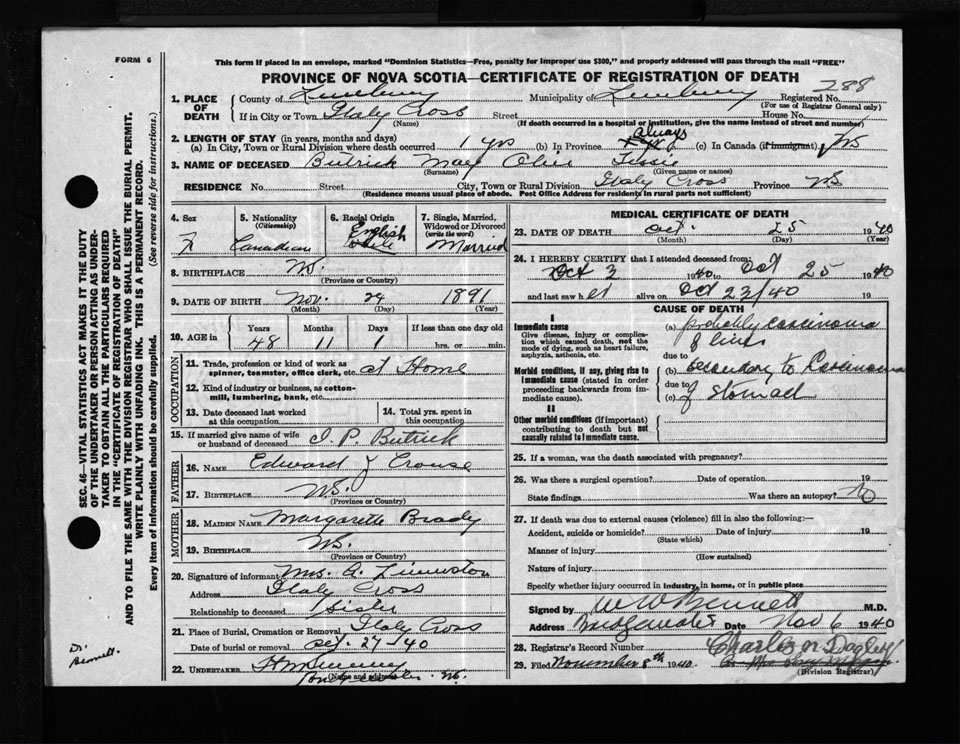 FORM 6
This form if placed in an envelope, marked "Dominion Statistics—Free, penalty for improper use $300," and properly addressed will pass through the mail "FREE"
PROVINCE OF NOVA SCOTIA—CERTIFICATE OF REGISTRATION OF DEATH
288
1. PLACE OF DEATH County of Lunenburg Municipality of Lunenburg Registered No.
(For use of Registrar General only)
If in City or Town Italy Cross Street House No.
(Name) (If death occurred in a hospital or institution, give the name instead of street and number)
2. LENGTH OF STAY (in years, months and days)
(a) In City, Town or Rural Division where death occurred 1 yrs (b) In Province always (c) In Canada (if immigrant) yrs
3. NAME OF DECEASED Butrick May Olive Tessie
(Surname) (Given name or names)
RESIDENCE No. Street City, Town or Rural Division Italy Cross Province NS
(Residence means usual place of abode. Post Office Address for residents in rural parts not sufficient)
4. Sex 5. Nationality (Citizenship) 6. Racial Origin 7. Single, Married, Widowed or Divorced (write the word)
F Canadian English White Married
8. BIRTHPLACE NS.
(Province or Country)
9. DATE OF BIRTH Nov. 24 1891
(Month) (Day) (Year)
10. AGE in Years Months Days If less than one day old
48 11 1 hrs. or min.
OCCUPATION
11. Trade, profession or kind of work as spinner, teamster, office clerk, etc. at Home
12. Kind of industry or business, as cotton-mill, lumbering, bank, etc.
13. Date deceased last worked at this occupation 14. Total yrs. spent in this occupation
15. If married give name of wife or husband of deceased I. P. Butrick
FATHER
16. NAME Edward J Crouse
17. BIRTHPLACE NS.
(Province or Country)
MOTHER
18. MAIDEN NAME Margarette Brady
19. BIRTHPLACE NS.
(Province or Country)
20. Signature of informant Mrs. A.
Address Italy Cross
Relationship to deceased Sister
21. Place of Burial, Cremation or Removal Italy Cross
Date of burial or removal Oct. 27-40
22. UNDERTAKER
(Name and address)
MEDICAL CERTIFICATE OF DEATH
23. DATE OF DEATH Oct. 25 1940
(Month) (Day) (Year)
24. I HEREBY CERTIFY that I attended deceased from:
Oct 3 1940 to Oct 25 1940
and last saw her alive on Oct 23/40 19
CAUSE OF DEATH
I
Immediate cause
Give disease, injury or complication which caused death, not the mode of dying, such as heart failure, asphyxia, asthenia, etc.
(a) probably carcinoma
of liver
due to
Morbid conditions, if any, giving rise to immediate cause (stated in order proceeding backwards from immediate cause).
(b) secondary to Carcinoma
due to
(c) of Stomach
II
Other morbid conditions (if important) contributing to death but not causally related to immediate cause.
25. If a woman, was the death associated with pregnancy?
26. Was there a surgical operation? Date of operation 19
State findings Was there an autopsy? No
27. If death was due to external causes (violence) fill in also the following:—
Accident, suicide or homicide? Date of injury 19
(State which)
Manner of injury
(How sustained)
Nature of injury
Specify whether injury occurred in industry, in home, or in public place
Signed by W W Bennett M.D.
Address Bridgewater Date Nov 6 1940
28. Registrar's Record Number
Charles N Dagley
29. Filed November 8th 1940
(Division Registrar)
SEC. 46—VITAL STATISTICS ACT MAKES IT THE DUTY
OF THE UNDERTAKER OR PERSON ACTING AS UNDER-
TAKER TO OBTAIN ALL THE PARTICULARS REQUIRED
IN THE "CERTIFICATE OF REGISTRATION OF DEATH"
AND TO FILE THE SAME WITH THE DIVISION REGISTRAR WHO SHALL ISSUE THE BURIAL PERMIT.
WRITE PLAINLY WITH UNFADING INK. THIS IS A PERMANENT RECORD.
Every item of information should be carefully supplied. (See reverse side for instructions.)
Dr.
Bennett.